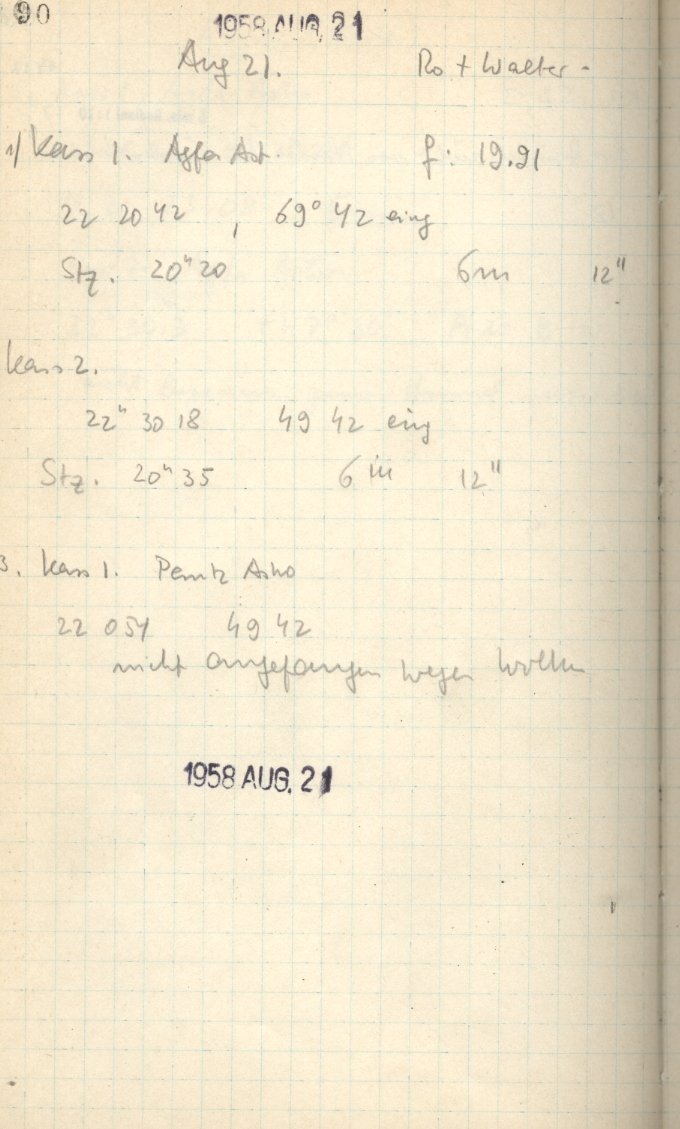 90
1958 AUG. 21
Aug 21. Ro + Walter -
1) Kass 1. Agfa Ast. f: 19.91
22 20 42 , 69° 42 eing
Stz. 20h 20 6m 12"
Kass 2.
22h 30 18 49 42 eing
Stz. 20h 35 6m 12"
3. Kass 1. Astro
22 054 49 42
nicht angefangen wegen Wolken
1958 AUG. 21